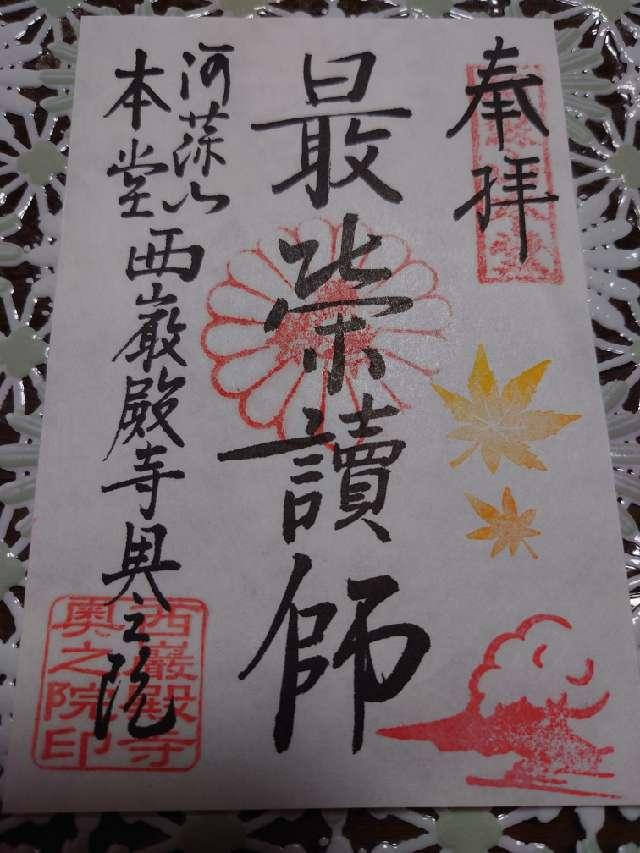 奉拝
最栄讀師
阿蘇山
本堂 西巌殿寺奥之院
西巖殿寺
奥之院印